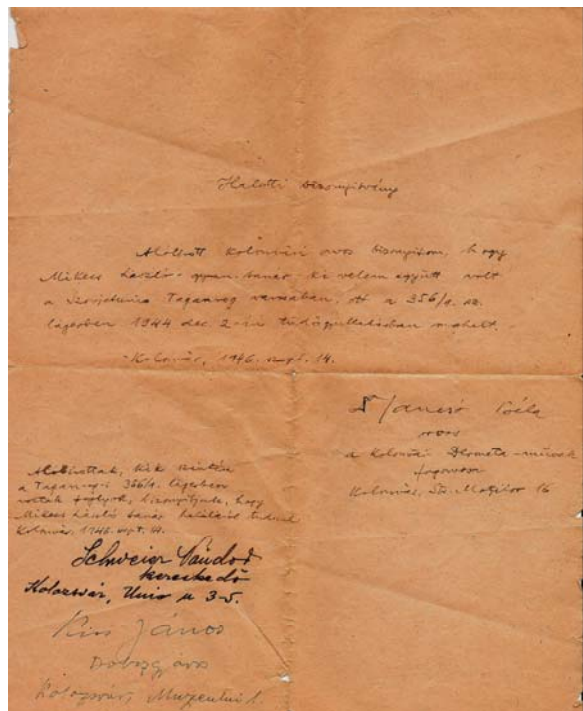 Halotti bizonyítvány
Alólírott kolozsvári orvos bizonyítom, hogy
Mikecs László gymn. tanár ki velem együtt volt
a Szovjetunió Taganrog városában, ott a 356/1. sz.
lágerben 1944 dec. 2-án tüdőgyulladásban meghalt.
Kolozsvár, 1946. szept. 14.
Dr Jancsó Béla
orvos
a kolozsvári művek
Kolozsvár, Str. 16
Alólírottak, kik szintén
a Taganrog-i 356/1. lágerben
voltak foglyok, bizonyítjuk, hogy
Mikecs László tanár haláláról tudunk
Kolozsvár, 1946. szept. 14.
Schweier Nándor
kereskedő
Kolozsvár, Unio u 3-5.
Kiss János
Kolozsvár,